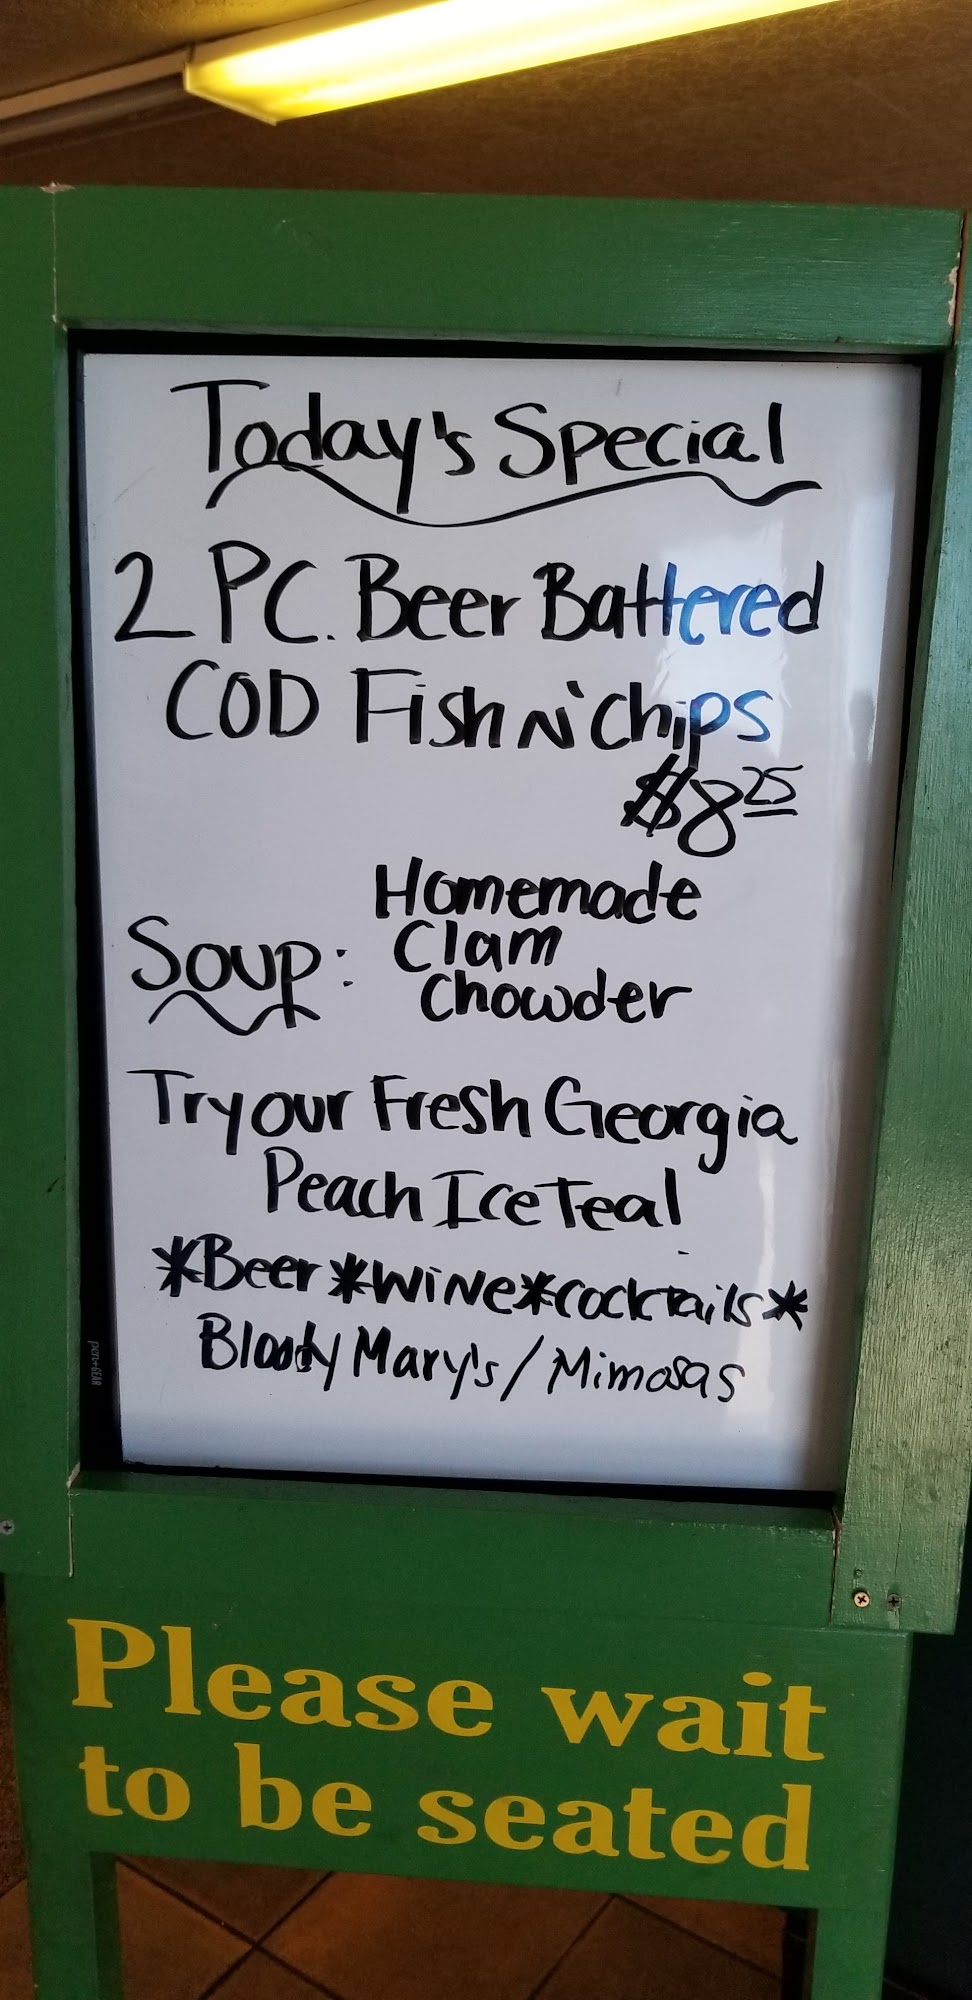 Today's Special
2 PC. Beer Battered
COD Fish N' Chips
$8 25
Homemade
Soup: Clam
Chowder
Try our Fresh Georgia
Peach Ice Tea!
*Beer*WiNe*cocktails*
Bloody Mary's/Mimosas
Please wait
to be seated